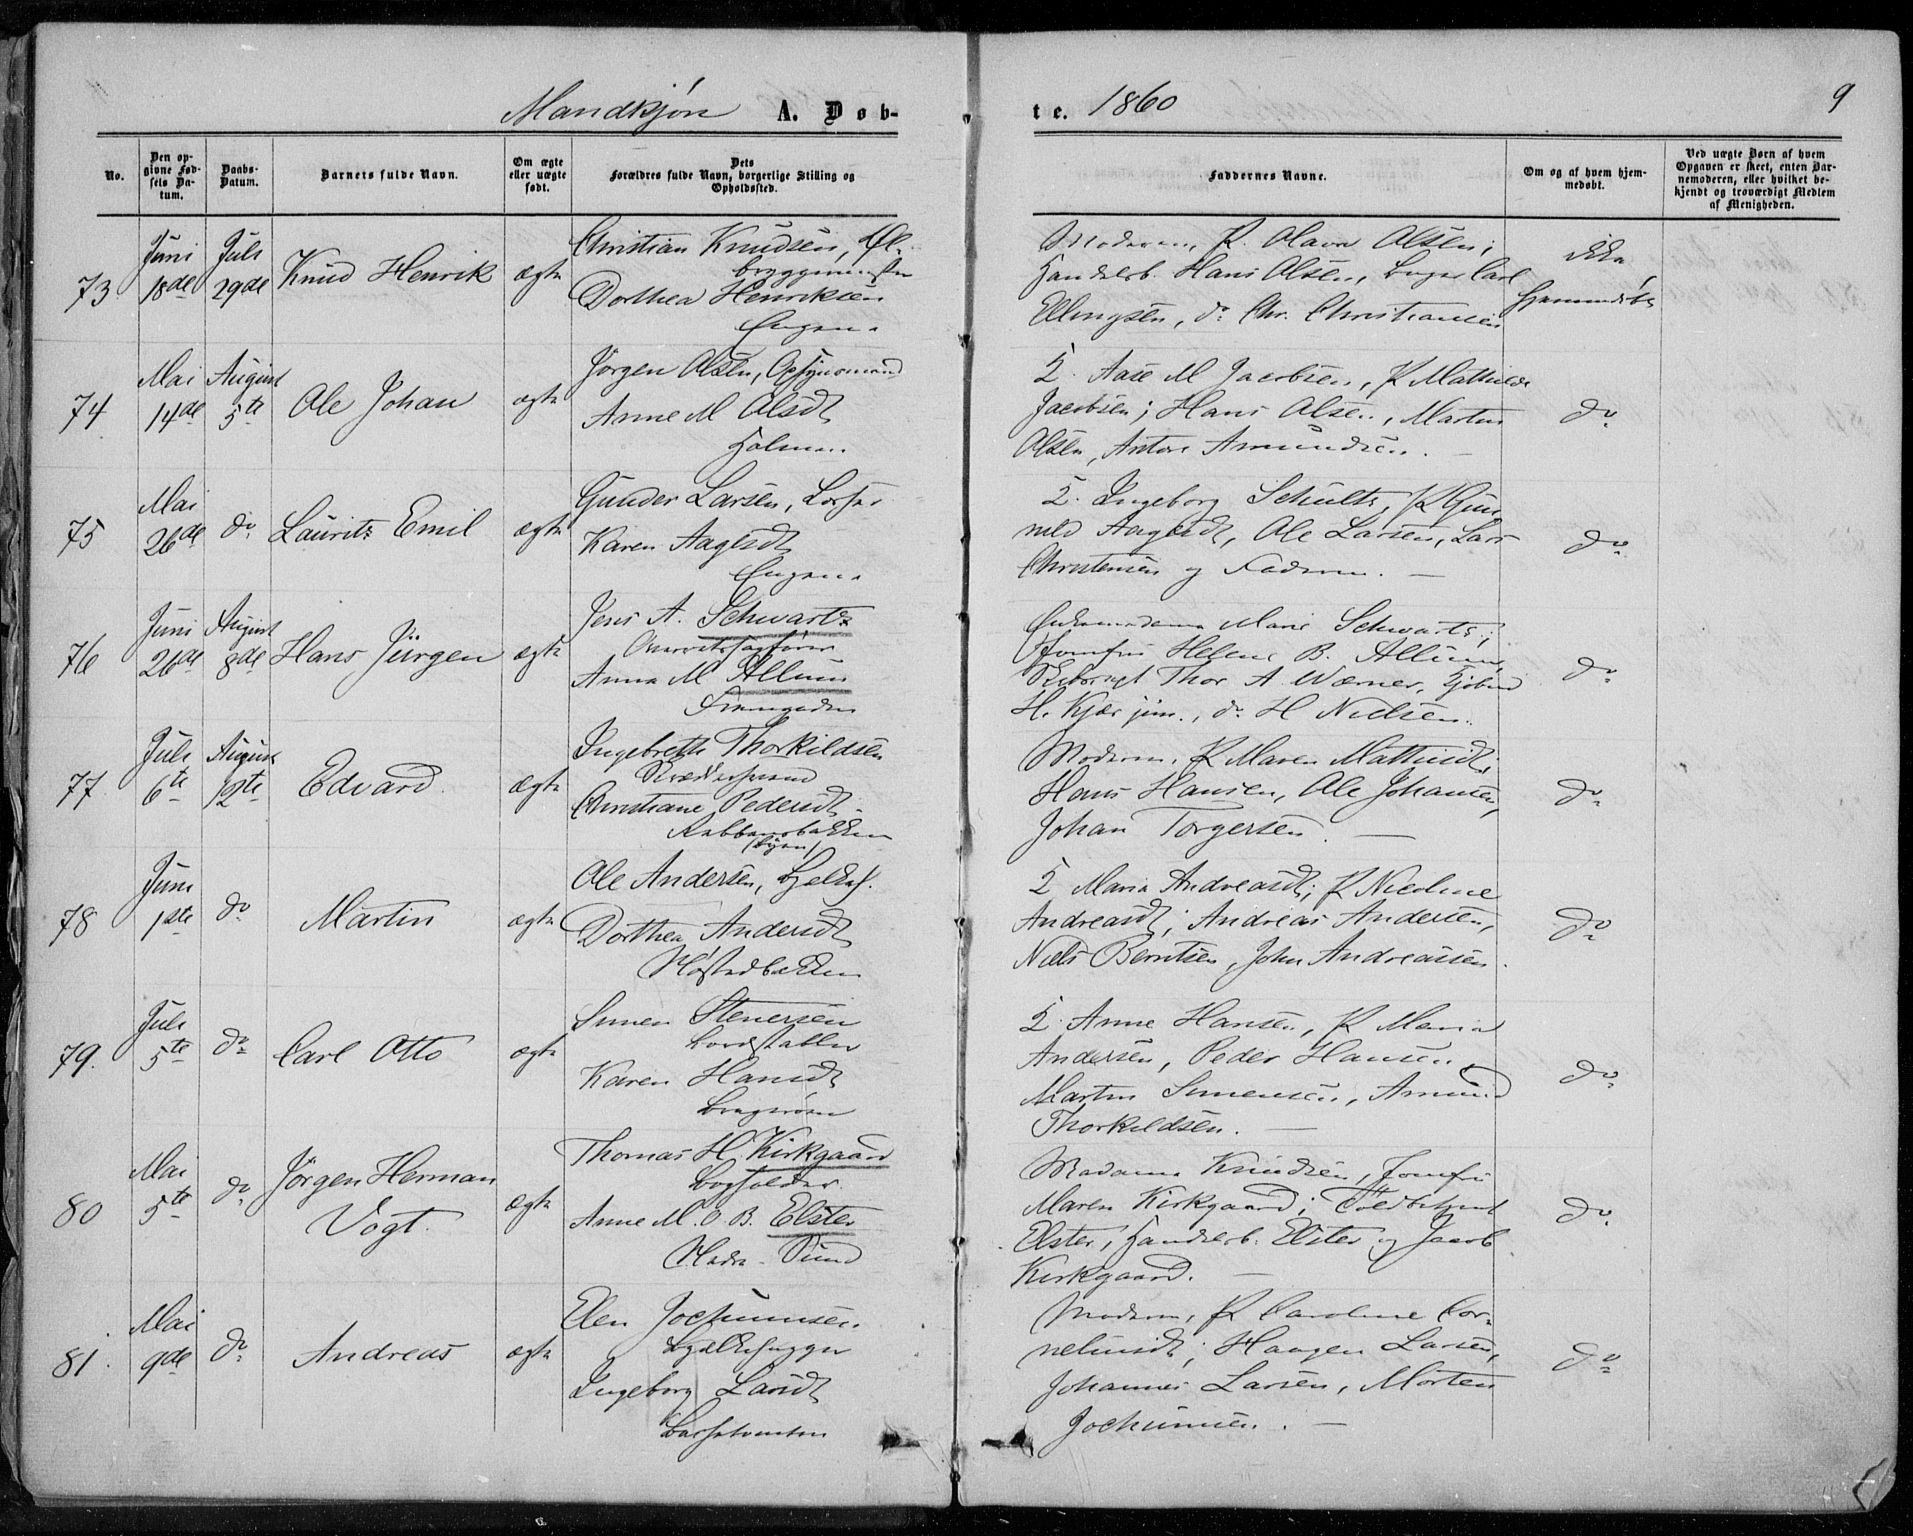 Mandkjøn A. Døb-
te. 1860
9
No.
Den opgivne Fødsels Datum.
Daabs-Datum.
Barnets fulde Navn.
Om ægte eller uægte født.
Dets Forældres fulde Navn, borgerlige Stilling og Opholdssted.
Faddernes Navne.
Om og af hvem hjemmedøbt.
Ved uægte Børn af hvem Opgaven er skeet, enten Barnemoderen, eller hvilket bekjendt og troværdigt Medlem af Menigheden.
73
Juni 18de
Juli 29de
Knud Henrik
ægte
Christian Knudsen, Øl-
bryggemester
Dorthea Henriksen
Engene
Moderen, P. Olava Olsen;
Handelsb. Hans Olsen, Carl
Ellingsen, do Chr. Christiansen
ikke
hjemmedøbt
74
Mai 14de
August 5te
Ole Johan
ægte
Jørgen Olsen, Opsynsmand
Anne M Olsdt
Holmen
K. Aase M Jacobsen, P Mathilde
Jacobsen; Hans Olsen, Martin
Olsen, Anton Amundsen. —
do
75
Mai 26de
do
Laurits Emil
ægte
Gunder Larsen, Lods
Karen Aagesdt
Engene
K. Ingeborg Schults, P Gun-
nild Aagesdt, Ole Larsen, Lars
Christensen og Faderen. —
do
76
Juni 26de
August 8de
Hans Jürgen
ægte
Jens A. Schwartz
Overretssagfører
Anna M Allum
Marie Schwartz;
Jomfru Helene B. Allum,
Thor A Wærner, Kjøbmd
H. Kjær jun., do H Nielsen.
do
77
Juli 6te
August 12te
Edvard
ægte
Ingebreth Thorkildsen
Skræddersvend
Christiane Pedersdt
(Byen)
Moderen, P Maren Mathisdt;
Hans Hansen, Ole Johansen,
Johan Torgersen. —
do
78
Juni 1ste
do
Martin
ægte
Ole Andersen, Bjelkeh.
Dorthea Andersdt
K Maria Andreasdt; P Nicoline
Andreasdt; Andreas Andersen,
Niels Berntsen, John Andreassen.
do
79.
Juli 5te
do
Carl Otto
ægte
Simen Stenersen
Bordstabler
Karen Hansdt
Bragerøen
K. Anne Hansen, P Maria
Andersen, Peder Hansen,
Martin Simensen, Amund
Thorkildsen. —
do
80
Mai 5te
do
Jørgen Herman
Vogt.
ægte
Thomas H. Kirkgaard
Bogholder
Anne M. O B. Elster
Sund
Madame Knudsen, Jomfru
Maren Kirkgaard; Toldbetjent
Elster, Handelsb. Elster og Jacob
Kirkgaard. —
do
81.
Mai 9de
do
Andreas
ægte
Elen Jochumsen
Bjelkehugger
Ingeborg Larsdt
Moderen, P Caroline Cor-
neliusdt; Haagen Larsen,
Johannes Larsen, Morten
Jochumsen. —
do